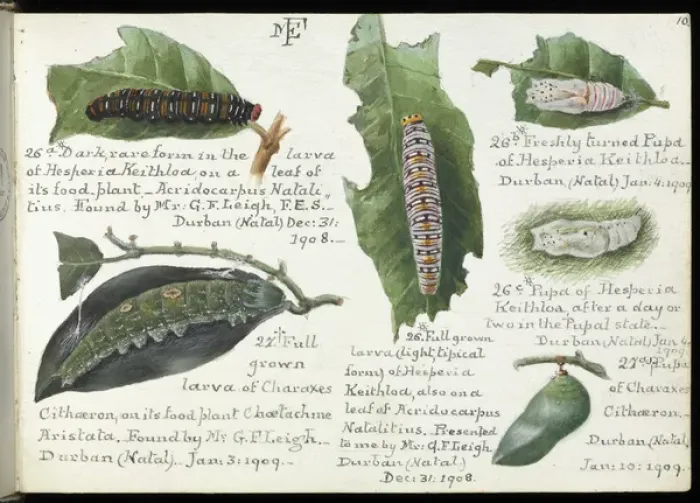 MEF
10
26ª Dark, rare form in the larva
of Hesperia Keithloa, on a leaf of
its food plant — Acridocarpus Natali-
tius. Found by Mr: G. F. Leigh, F.E.S. —
Durban (Natal) Dec: 31:
1908. —
26 Full grown
larva (light, tipical
form) of Hesperia
Keithloa, also on a
leaf of Acridocarpus
Natalitius. Presented
to me by Mr: G. F. Leigh
Durban (Natal)
Dec: 31: 1908
26ᵇ Freshly turned Pupa
of Hesperia Keithloa. —
Durban, (Natal) Jan: 4: 1909
26ᶜ Pupa of Hesperia
Keithloa, after a day or
two in the Pupal state. —
Durban (Natal) Jan 4
1909
27 Full
grown
larva of Charaxes
Cithæron, on its food plant Chætachme
Aristata. Found by Mr G. F. Leigh. —
Durban (Natal). Jan: 3: 1909. —
27ª Pupa
of Charaxes
Cithæron. —
Durban (Natal)
Jan: 10: 1909.